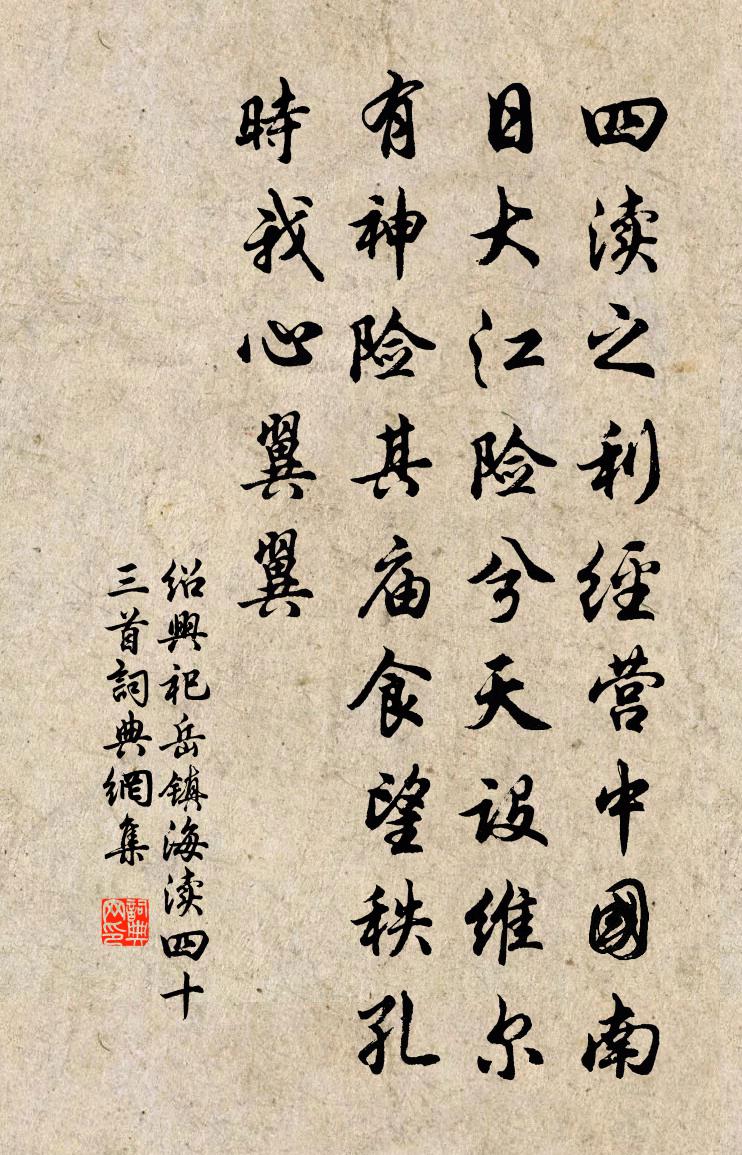 四渎之利經营中國南
日大江险兮天设维尔
有神险其庙食望秩孔
時我心翼翼
绍興祀岳鎮海渎四十
三首詞典網集
詞典网印